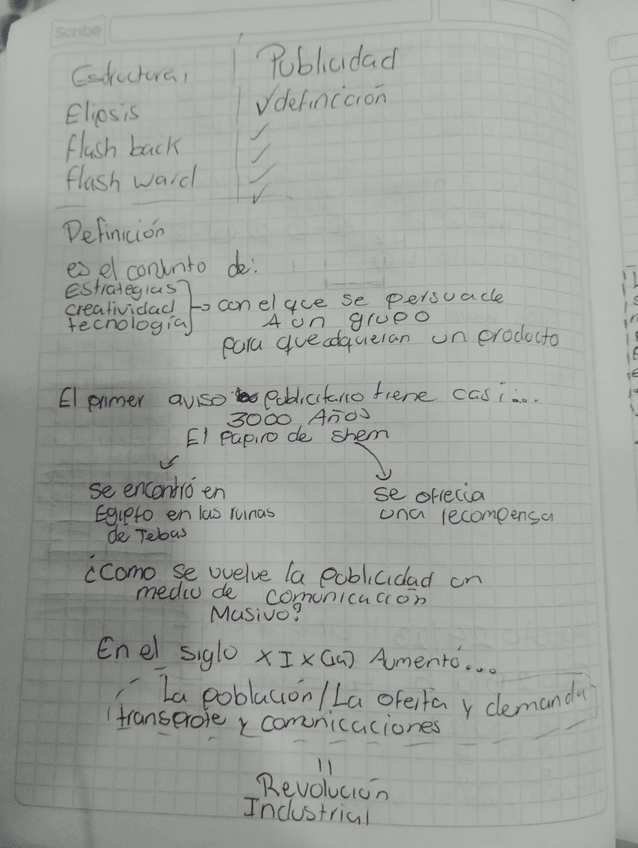 Scribe
Estructura, | Publicidad
Elipsis | ✓definicción
flash back ✓
flash ward ✓
Definición
es el conjunto de:
Estrategias
creatividad → con el que se persuade
tecnología A un grupo
para que adquieran un producto
El primer aviso publicitario tiene casi...
3000 Años
El papiro de shem
Se encontró en
Egipto en las ruinas
de Tebas
se ofrecia
una recompensa
¿Como se vuelve la publicidad un
medio de comunicación
Masivo?
En el siglo XIX (19) Aumentó...
La población/La oferta y demanda
transprote y comunicaciones
||
Revolución
Industrial